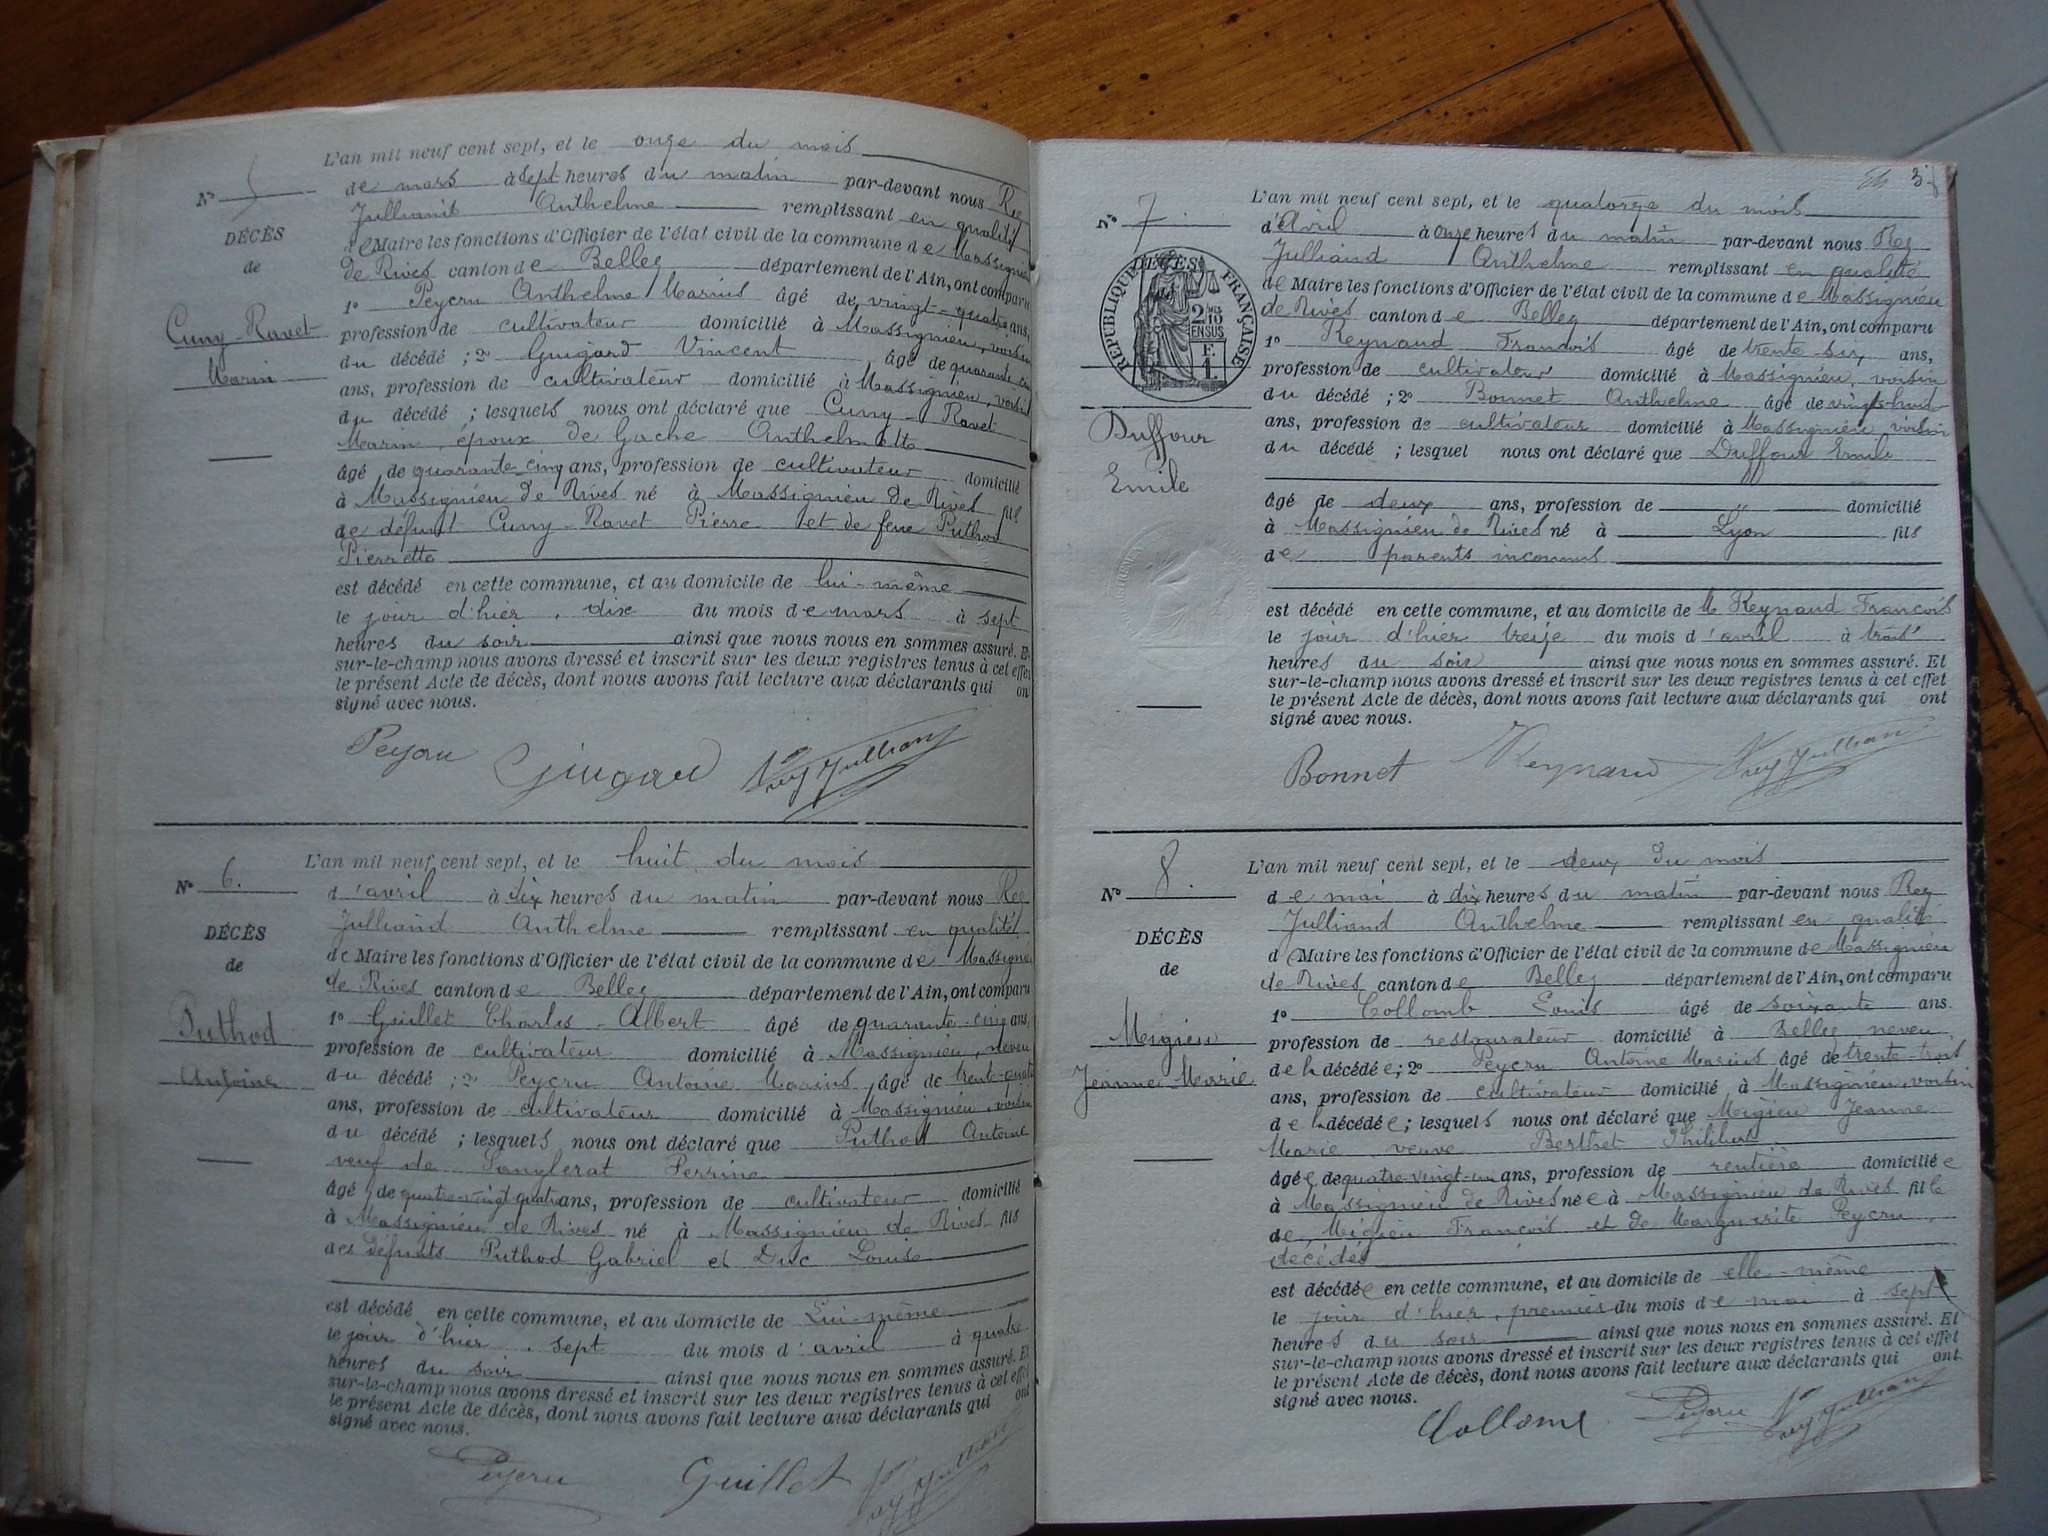 L'an mil neuf cent sept, et le onze du mois
N° 5
de mars à sept heures du matin par-devant nous Rey
Julliand Anthelme remplissant en qualité
DÉCÈS
de Maire les fonctions d'Officier de l'état civil de la commune de Massignieu
de
de Rives canton de Belley département de l'Ain, ont comparu
1° Peycru Anthelme Marius âgé de vingt-quatre ans,
Cuny-Ravet
profession de cultivateur domicilié à Massignieu, voisin
du décédé ; 2° Guigard Vincent âgé de quarante
Marin
ans, profession de cultivateur domicilié à Massignieu, voisin
du décédé ; lesquels nous ont déclaré que Cuny-Ravet
Marin, époux de Gache Anthelmette
âgé de quarante-cinq ans, profession de cultivateur domicilié
à Massignieu de Rives né à Massignieu de Rives fils
de défunt Cuny-Ravet Pierre et de feue Puthod
Pierrette
est décédé en cette commune, et au domicile de lui-même
le jour d'hier, dix du mois de mars à sept
heures du soir ainsi que nous nous en sommes assuré. Et
sur-le-champ nous avons dressé et inscrit sur les deux registres tenus à cet effet
le présent Acte de décès, dont nous avons fait lecture aux déclarants qui ont
signé avec nous.
Peycru Guigard Rey Julliand
L'an mil neuf cent sept, et le huit du mois
N° 6.
d'avril à dix heures du matin par-devant nous Rey
Julliand Anthelme remplissant en qualité
DÉCÈS
de Maire les fonctions d'Officier de l'état civil de la commune de Massignieu
de
de Rives canton de Belley département de l'Ain, ont comparu
1° Guillet Charles-Albert âgé de quarante-cinq ans,
Puthod
profession de cultivateur domicilié à Massignieu, neveu
Antoine
du décédé ; 2° Peycru Antoine Marius, âgé de trente-quatre
ans, profession de cultivateur domicilié à Massignieu, voisin
du décédé ; lesquels nous ont déclaré que Puthod Antoine
veuf de Sanglerat Perrine
âgé de quatre-vingt-quatre ans, profession de cultivateur domicilié
à Massignieu de Rives né à Massignieu de Rives fils
des défunts Puthod Gabriel et Duc Louise
est décédé en cette commune, et au domicile de Lui-même
le jour d'hier, sept du mois d'avril à quatre
heures du soir ainsi que nous nous en sommes assuré. Et
sur-le-champ nous avons dressé et inscrit sur les deux registres tenus à cet effet
le présent Acte de décès, dont nous avons fait lecture aux déclarants qui ont
signé avec nous.
Peycru Guillet Rey Julliand
3
L'an mil neuf cent sept, et le quatorze du mois
N° 7
d'Avril à onze heures du matin par-devant nous Rey
Julliand Anthelme remplissant en qualité
DÉCÈS
RÉPUBLIQUE FRANÇAISE
2 10 EN SUS
F. 1.
de Maire les fonctions d'Officier de l'état civil de la commune de Massignieu
de Rives canton de Belley département de l'Ain, ont comparu
1° Reynaud Francois âgé de trente six ans,
profession de cultivateur domicilié à Massignieu, voisin
du décédé ; 2° Bonnet Anthelme âgé de vingt-huit
Duffour
ans, profession de cultivateur domicilié à Massignieu, voisin
du décédé ; lesquel nous ont déclaré que Duffour Emile
Emile
âgé de deux ans, profession de domicilié
à Massignieu de Rives né à Lyon fils
de parents inconnus
est décédé en cette commune, et au domicile de M. Reynaud Francois
le jour d'hier treize du mois d'avril à trois
heures du soir ainsi que nous nous en sommes assuré. Et
sur-le-champ nous avons dressé et inscrit sur les deux registres tenus à cet effet
le présent Acte de décès, dont nous avons fait lecture aux déclarants qui ont
signé avec nous.
Bonnet Reynaud Rey Julliand
L'an mil neuf cent sept, et le deux du mois
N° 8.
de mai à dix heures du matin par-devant nous Rey
Julliand Anthelme remplissant en qualité
DÉCÈS
de Maire les fonctions d'Officier de l'état civil de la commune de Massignieu
de
de Rives canton de Belley département de l'Ain, ont comparu
1° Collomb Louis âgé de soixante ans.
Migieu
profession de restaurateur domicilié à Belley, neveu
Jeanne-Marie
de la décédée ; 2° Peycru Antoine Marius âgé de trente-trois
ans, profession de cultivateur domicilié à Massignieu, voisin
de la décédée ; lesquels nous ont déclaré que Migieu Jeanne
Marie veuve Berthet Philibert
âgée de quatre-vingt-un ans, profession de rentière domiciliée
à Massignieu de Rives née à Massignieu de Rives fille
de Migieu Francois et de Marguerite Peycru,
décédés
est décédée en cette commune, et au domicile de elle-même
le jour d'hier, premier du mois de mai à sept
heures du soir ainsi que nous nous en sommes assuré. Et
sur-le-champ nous avons dressé et inscrit sur les deux registres tenus à cet effet
le présent Acte de décès, dont nous avons fait lecture aux déclarants qui ont
signé avec nous.
Collomb Peycru Rey Julliand